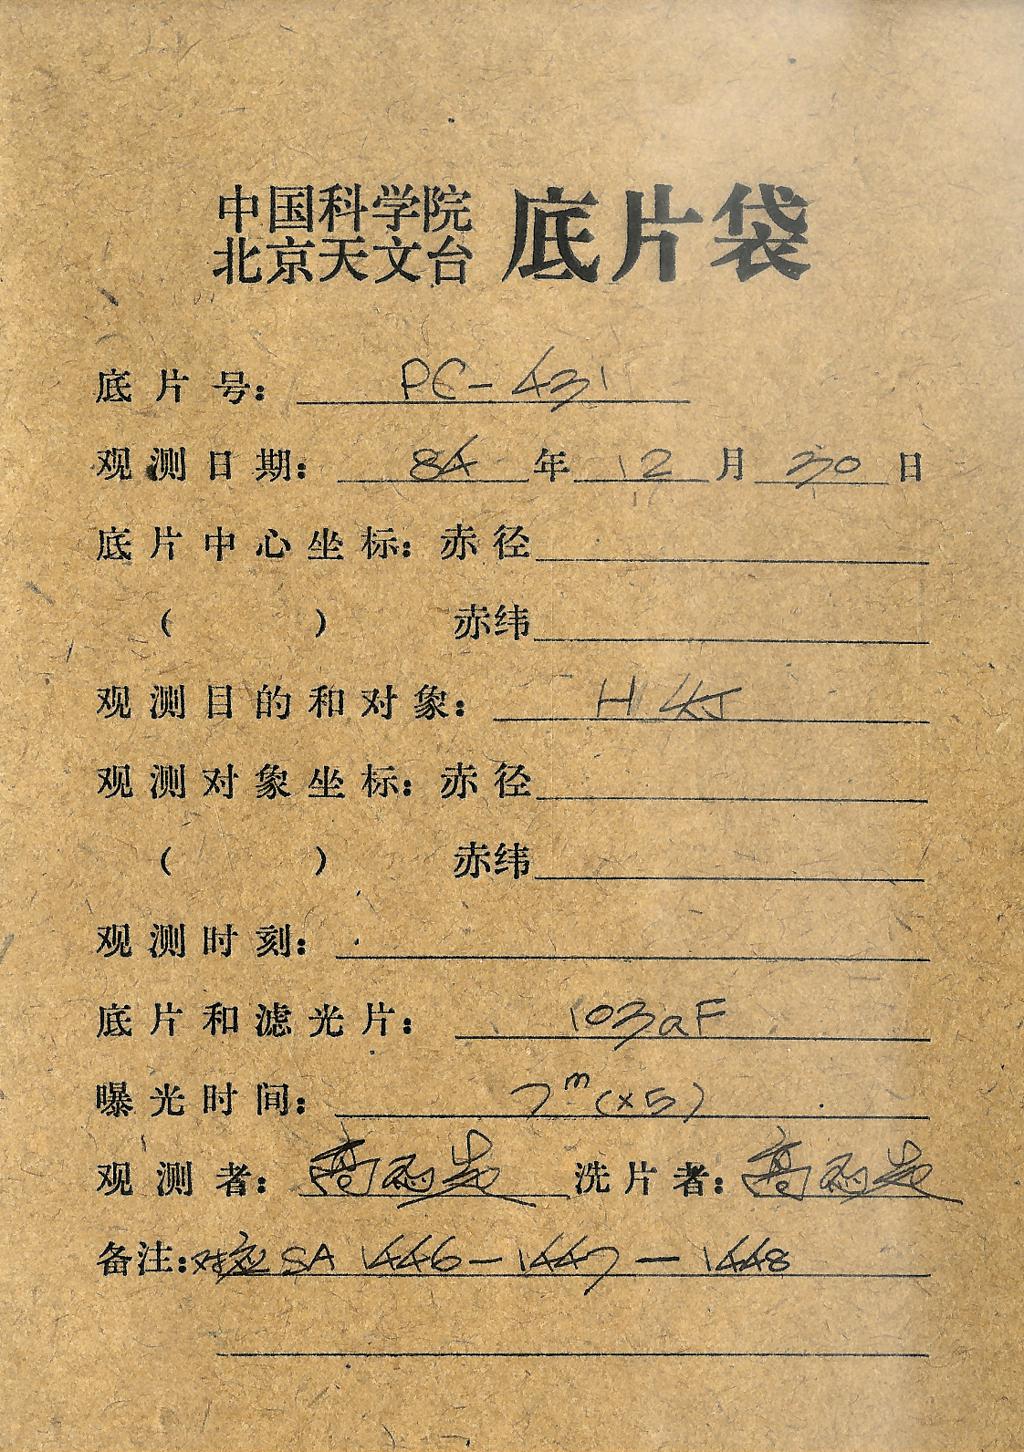 中国科学院
北京天文台 底片袋
底片号: PC-431
观测日期: 84 年 12 月 30 日
底片中心坐标: 赤径
( ) 赤纬
观测目的和对象: H
观测对象坐标: 赤径
( ) 赤纬
观测时刻:
底片和滤光片: 103aF
曝光时间: 7m(×5)
观测者: 高 洗片者: 高
备注: 对应 SA 1446-1447-1448